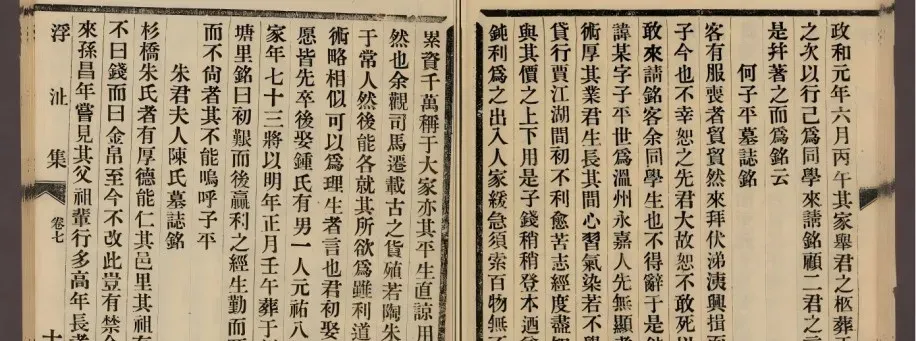 政和元年六月丙午其家舉君之柩葬于
之次以行己爲同學來請銘顧二君之言
是幷著之而爲銘云
何子平墓誌銘
客有服喪者貿貿然來拜伏涕洟興揖而
子今也不幸恕之先君大故恕不敢死以
敢來請銘客余同學生也不得辭于是
諱某字子平世爲溫州永嘉人先無顯者
術厚其業君生長其間心習氣染若不學
貸行賈江湖間初不利愈苦志經度盡知
與其價之上下用是子錢稍稍登本迺
鈍利爲之出入人家緩急須索百物無不
累資千萬稱于大家亦其平生直諒用
然也余觀司馬遷載古之貨殖若陶朱
于常人然後能各就其所欲爲雖利道
術略相似可以爲理生者言也君初娶
愿皆先卒後娶鍾氏有男一人元祐八
家年七十三將以明年正月壬午葬于
塘里銘曰初艱而後贏利之經生勤而
而不尙者其不能嗚呼子平
朱君夫人陳氏墓誌銘
杉橋朱氏者有厚德能仁其邑里其祖有
不曰錢而曰金帛至今不改此豈有禁令
來孫昌年嘗見其父祖輩行多高年長者
浮沚集
卷七